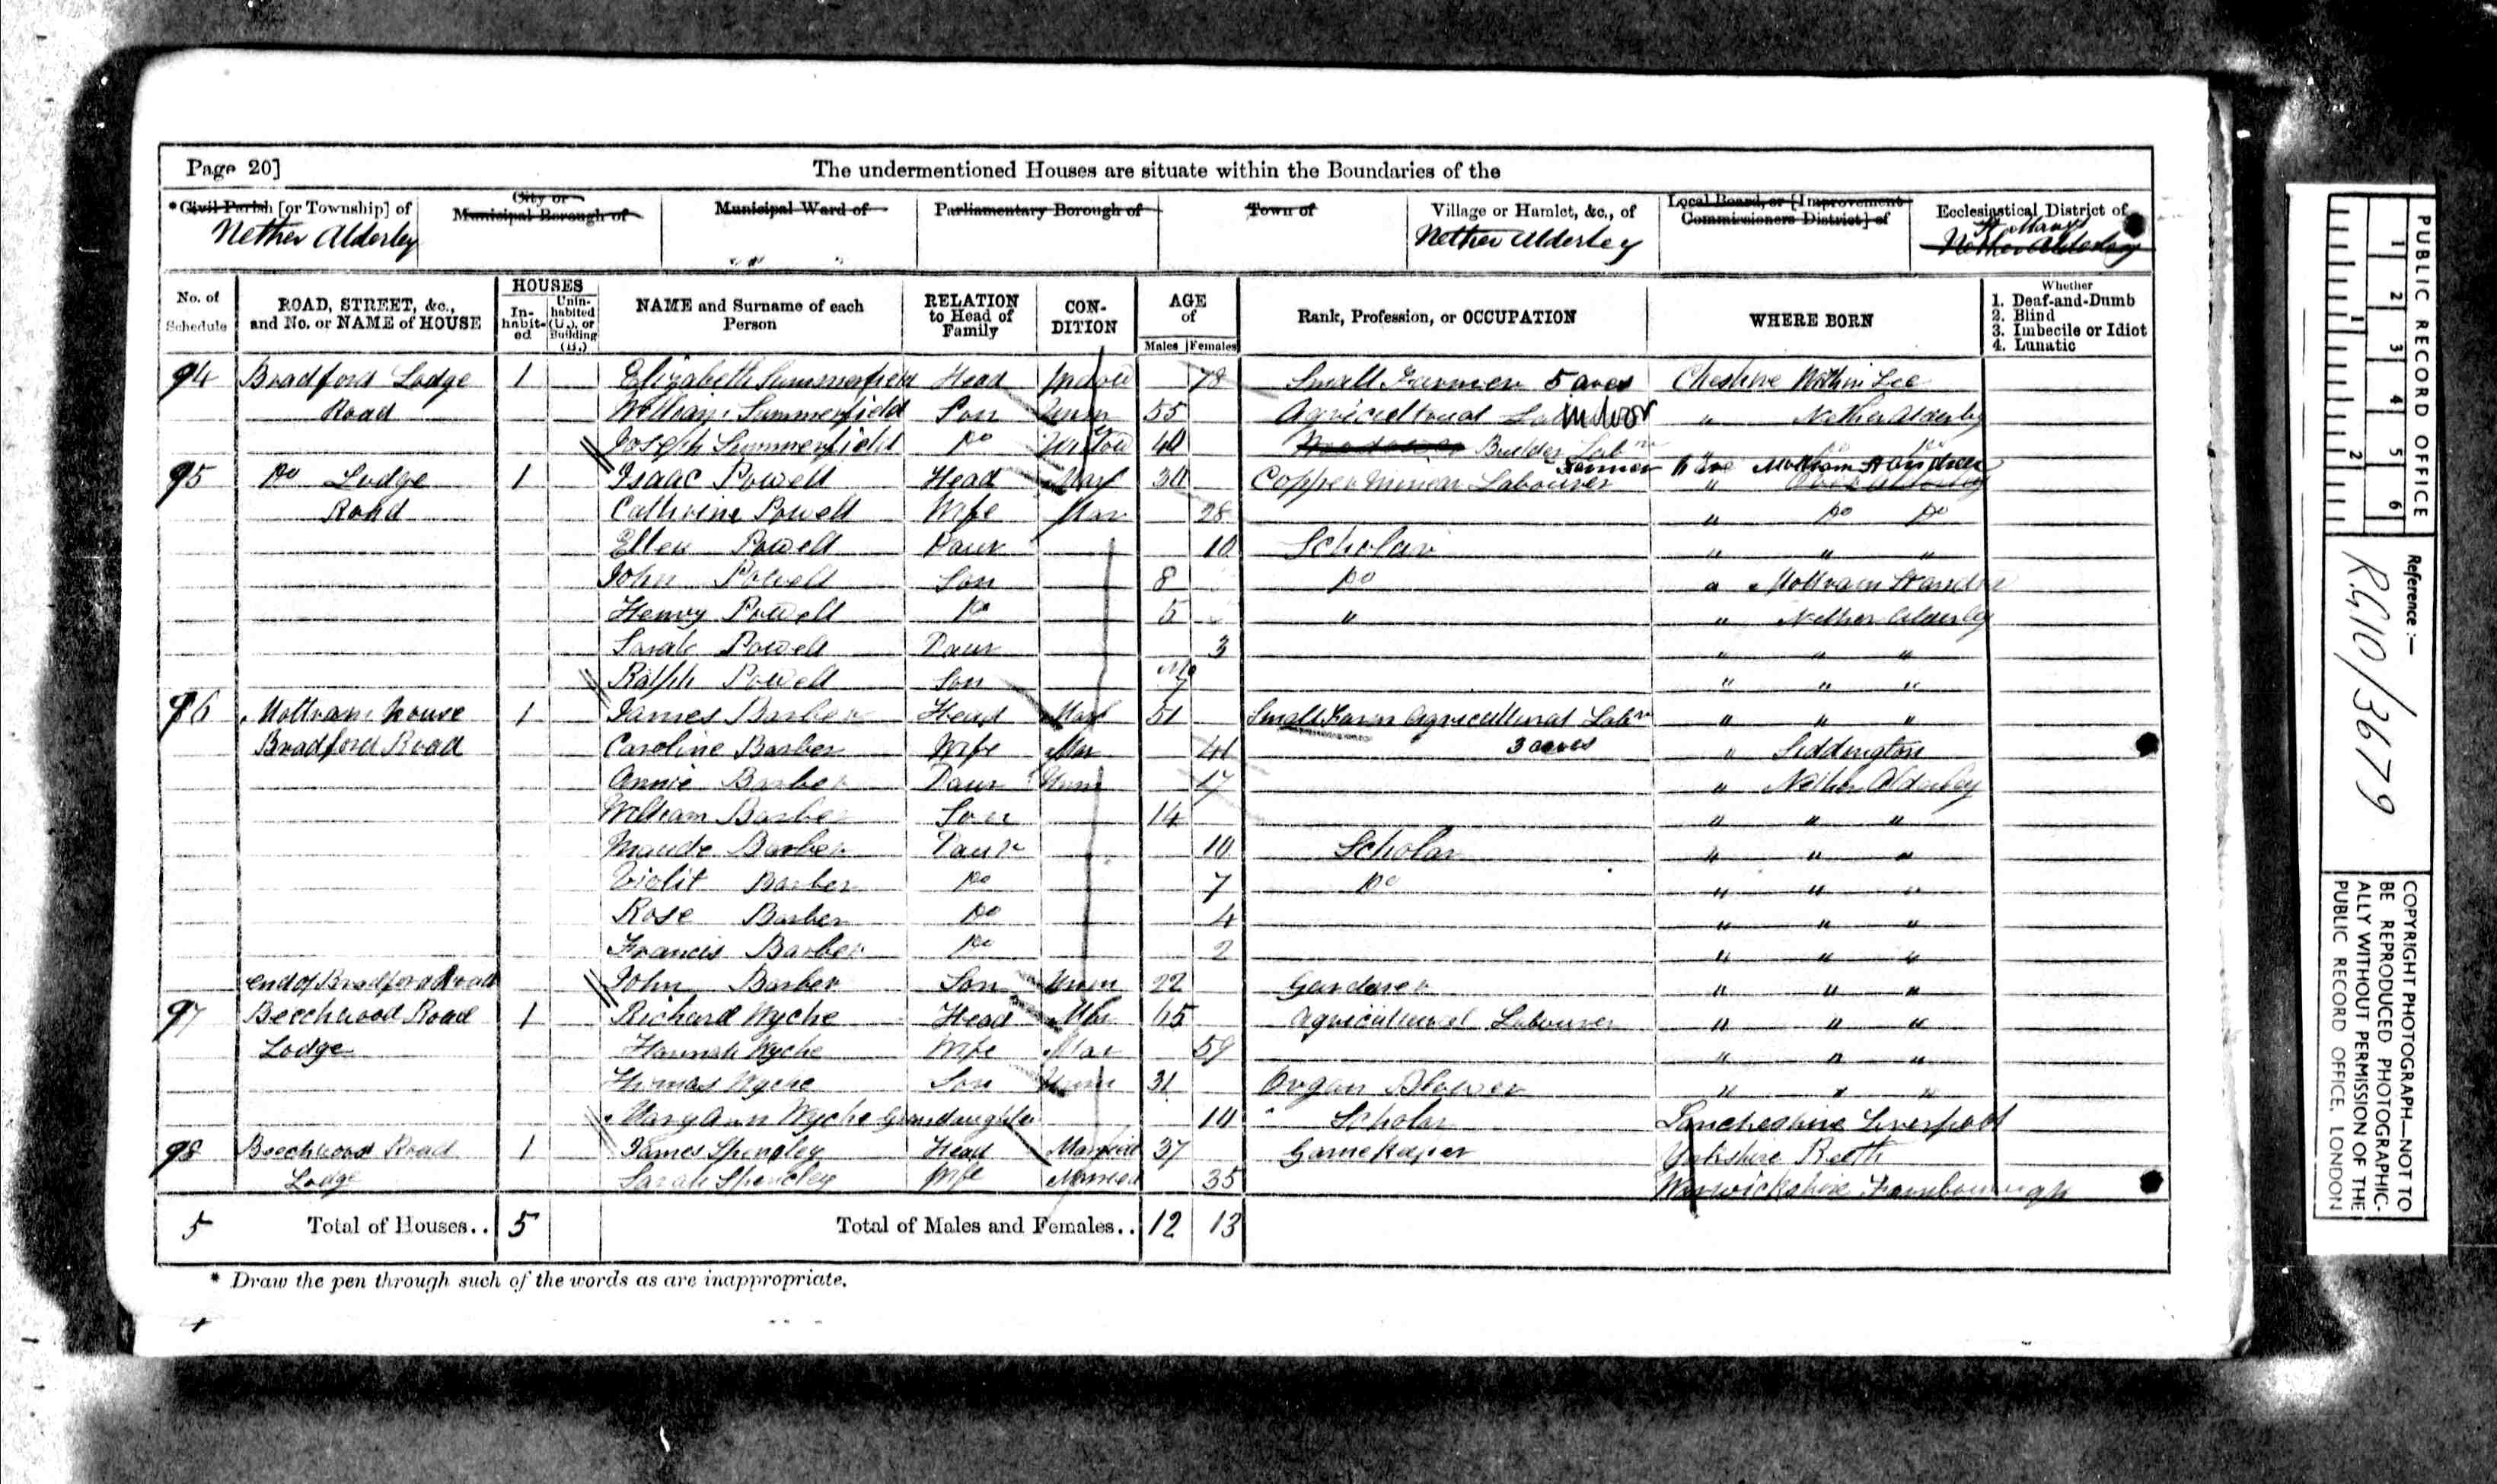 Page 20] The undermentioned Houses are situate within the Boundaries of the
*Civil Parish [or Township] of City or Municipal Borough of Municipal Ward of Parliamentary Borough of Town of Village or Hamlet, &c., of Local Board, or [Improvement Commissioners District] of Ecclesiastical District of
Nether Alderley " " " Nether Alderley St Marys Nether Alderley
No. of Schedule ROAD, STREET, &c., and No. or NAME of HOUSE HOUSES Inhabited Uninhabited (U.), or Building (B.) NAME and Surname of each Person RELATION to Head of Family CONDITION AGE of Males Females Rank, Profession, or OCCUPATION WHERE BORN Whether 1. Deaf-and-Dumb 2. Blind 3. Imbecile or Idiot 4. Lunatic
94 Bradford Lodge 1 Elizabeth Summerfield Head Widow 78 Small Farmer 5 acres Cheshire
Road William Summerfield Son Unm 55 Agricultural indoor " Nether Alderley
Joseph Summerfield Do Widow 40 Builder Labr Do Do
95 Do Lodge 1 Isaac Powell Head Mar 30 Copper Miner Labourer " Mottram St Andrew
Road Catherine Powell Wife Mar 28 " Do Do
Ellen Powell Daur 10 Scholar " " "
John Powell Son 8 Do " Mottram St Andrew
Henry Powell Do 5 " " Nether Alderley
Sarah Powell Daur 3 " " "
Ralph Powell Son Mo 7 " " "
96 Mottram house 1 James Barber Head Mar 51 Small Farm Agricultural Labr " " "
Bradford Road Caroline Barber Wife Mar 41 3 acres " Siddington
Annie Barber Daur Unm 17 " Nether Alderley
William Barber Son 14 " " "
Maude Barber Daur 10 Scholar " " "
Violit Barber Do 7 Do " " "
Rose Barber Do 4 " " "
Francis Barber Do 2 " " "
end of Bradford Road John Barber Son Unm 22 Gardener " " "
97 Beechwood Road 1 Richard Wyche Head Mar 65 Agricultural Labourer " " "
Lodge Hannah Wyche Wife Mar 59 " " "
Thomas Wyche Son Unm 31 Organ Blower " " "
Mary Ann Wyche Grandaughter 10 " Scholar Lancheshire Liverpool
98 Beechwood Road 1 James Spensley Head Married 37 Gamekeeper Yorkshire Reeth
Lodge Sarah Spensley Wife Married 35 Warwickshire Farnborough
5 Total of Houses.. 5 Total of Males and Females.. 12 13
* Draw the pen through such of the words as are inappropriate.
PUBLIC RECORD OFFICE
1 2 3 4 5 6
1 2
Reference :—
RG10/3679
COPYRIGHT PHOTOGRAPH—NOT TO
BE REPRODUCED PHOTOGRAPHIC-
ALLY WITHOUT PERMISSION OF THE
PUBLIC RECORD OFFICE, LONDON